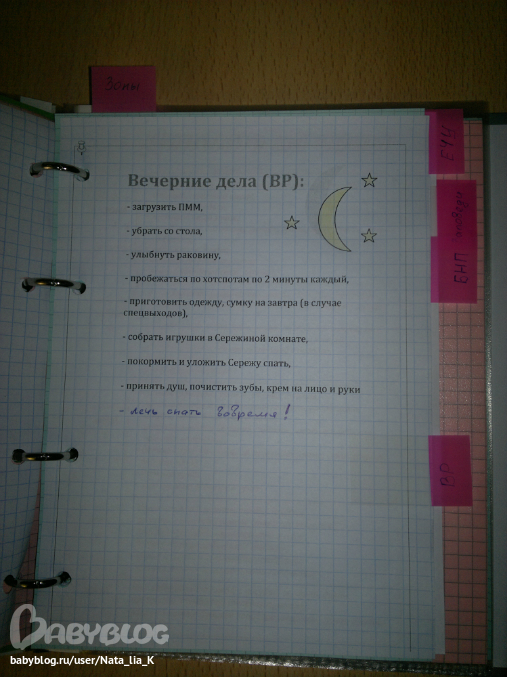 Зоны
ЕЧЦ
БНП
Вечерние дела (ВР):
- загрузить ПММ,
- убрать со стола,
- улыбнуть раковину,
- пробежаться по хотспотам по 2 минуты каждый,
- приготовить одежду, сумку на завтра (в случае
спецвыходов),
- собрать игрушки в Сережиной комнате,
- покормить и уложить Сережу спать,
- принять душ, почистить зубы, крем на лицо и руки
- лечь спать вовремя!
ВР
BABYBLOG
babyblog.ru/user/Nata_lia_K